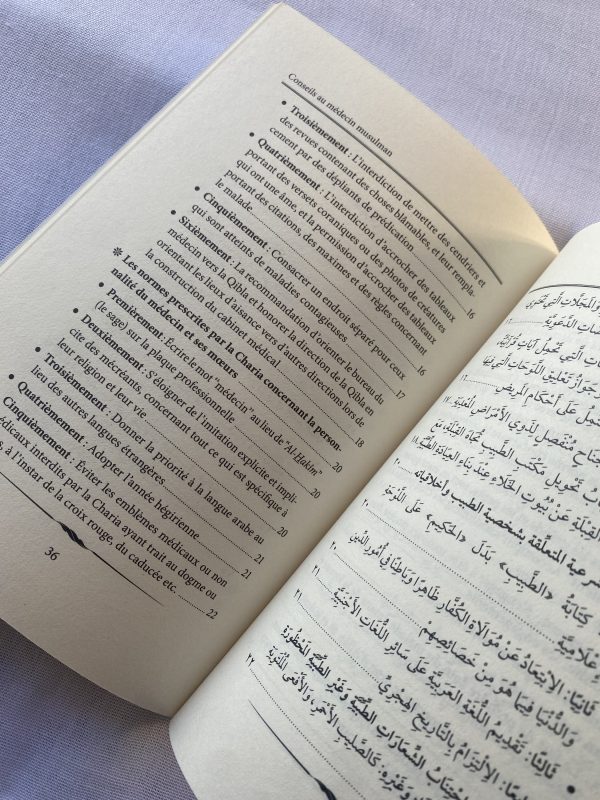 Conseils au médecin musulman
• Troisièmement : L'interdiction de mettre des cendriers et
des revues contenant des choses blâmables, et leur rempla-
cement par des dépliants de prédication ..... 16
• Quatrièmement : L'interdiction d'accrocher des tableaux
portant des versets coraniques ou des photos de créatures
qui ont une âme, et la permission d'accrocher des tableaux
portant des citations, des maximes et des règles concernant
le malade ..... 16
• Cinquièmement : Consacrer un endroit séparé pour ceux
qui sont atteints de maladies contagieuses ..... 17
• Sixièmement : La recommandation d'orienter le bureau du
médecin vers la Qibla et honorer la direction de la Qibla en
orientant les lieux d'aisance vers d'autres directions lors de
la construction du cabinet médical ..... 18
❋ Les normes prescrites par la Charia concernant la person-
nalité du médecin et ses mœurs ..... 20
• Premièrement: Écrire le mot "médecin" au lieu de "Al-Hakîm"
(le sage) sur la plaque professionnelle ..... 20
• Deuxièmement : S'éloigner de l'imitation explicite et impli-
cite des mécréants, concernant tout ce qui est spécifique à
leur religion et leur vie ..... 20
• Troisièmement : Donner la priorité à la langue arabe au
lieu des autres langues étrangères ..... 21
• Quatrièmement : Adopter l'année hégirienne ..... 21
Cinquièmement : Eviter les emblèmes médicaux ou non
médicaux interdits par la Charia ayant trait au dogme ou
à l'instar de la croix rouge, du caducée etc. ..... 22
36
وَالْمَجَلَّاتِ الَّتِي تَحْتَوِي
الدَّعَوِيَّةِ ..... ١٦
الَّتِي تَحْمِلُ آيَاتٍ قُرْآنِيَّةً،
جَوَازُ تَعْلِيقِ اللَّوْحَاتِ الَّتِي فِيهَا
عَلَى أَحْكَامِ الْمَرِيضِ ..... ١٦
جَنَاحٍ مُنْفَصِلٍ لِذَوِي الْأَمْرَاضِ الْمُعْدِيَةِ ..... ١٧
تَحْوِيلِ مَكْتَبِ الطَّبِيبِ تُجَاهَ الْقِبْلَةِ، ثُمَّ
الْقِبْلَةِ عَنْ بُيُوتِ الْخَلَاءِ عِنْدَ بِنَاءِ الْعِيَادَةِ الطِّبِّيَّةِ ١٨
المتعلِّقة بشخصية الطبيب وأخلاقياته ..... ٢٠
كِتَابَةُ «الطَّبِيبِ» بَدَلَ «الْحَكِيمِ» عَلَى اللَّوْحَةِ
الْإِعْلَامِيَّةِ ..... ٢٠
ثَانِيًا: الِابْتِعَادُ عَنْ مُوَالَاةِ الْكُفَّارِ ظَاهِرًا وَبَاطِنًا فِي أُمُورِ الدِّينِ
وَالدُّنْيَا فِيمَا هُوَ مِنْ خَصَائِصِهِمْ ..... ٢٠
ثَالِثًا: تَقْدِيمُ اللُّغَةِ الْعَرَبِيَّةِ عَلَى سَائِرِ اللُّغَاتِ الْأَجْنَبِيَّةِ ..... ٢١
الِالْتِزَامُ بِالتَّارِيخِ الْهِجْرِيِّ ..... ٢١
اجْتِنَابُ الشِّعَارَاتِ الطِّبِّيَّةِ وَغَيْرِ الطِّبِّيَّةِ الْمَحْظُورَةِ
وَغَيْرِهِ: كَالصَّلِيبِ الْأَحْمَرِ، وَالْأَفْعَى الْمُلْتَوِيَةِ ٢٢